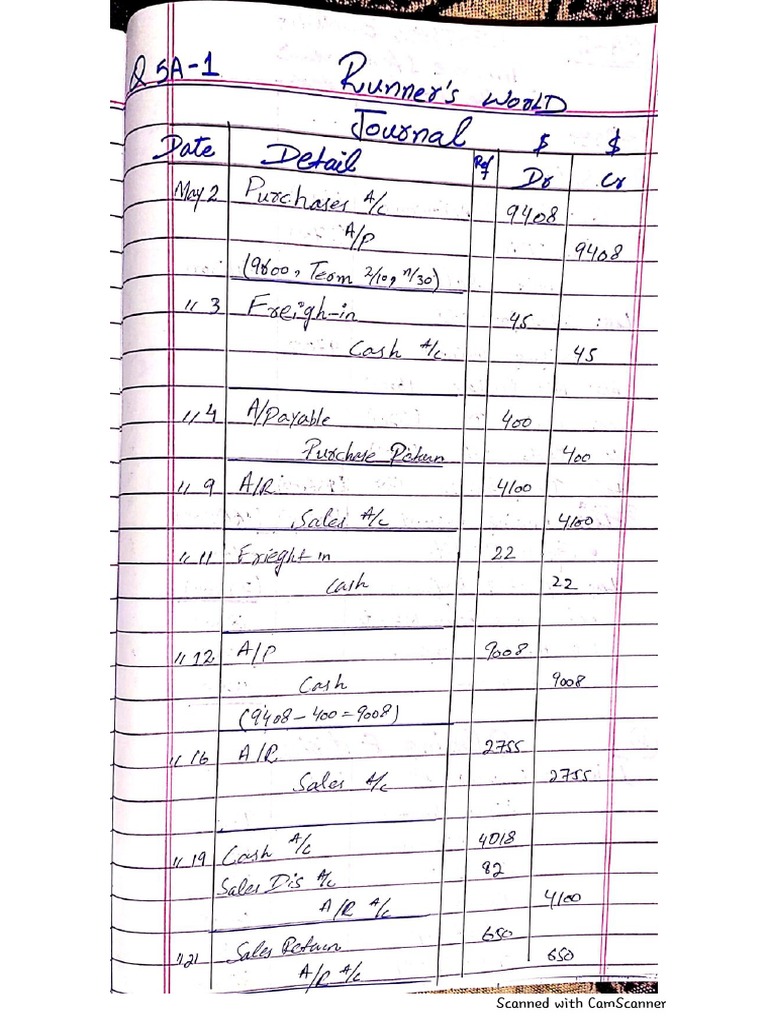 Q 5A-1
Runner's WORLD
Journal $ $
Date Detail Ref Dr Cr
May 2 Purchases A/c 9408
A/P 9408
(9600, Term 2/10, n/30)
" 3 Freigh-in 45
Cash A/c 45
" 4 A/Payable 400
Purchase Return 400
" 9 A/R 4100
Sales A/c 4100
" 11 Frieght in 22
Cash 22
" 12 A/P 9008
Cash 9008
(9408-400=9008)
" 16 A/R 2755
Sales A/c 2755
" 19 Cash A/c 4018
Sales Dis A/c 82
A/R A/c 4100
" 21 Sales Return 650
A/R A/c 650
Scanned with CamScanner